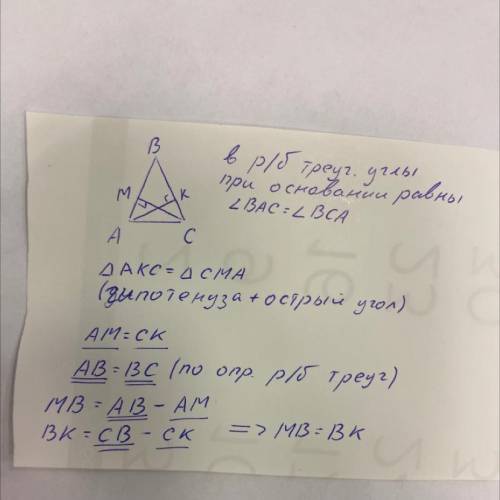 B
M K
A C
в р/б треуг. углы
при основании равны
∠BAC = ∠BCA
△AKC = △CMA
(гипотенуза + острый угол)
AM = CK
AB = BC (по опр. р/б треуг)
MB = AB - AM
BK = CB - CK => MB = BK